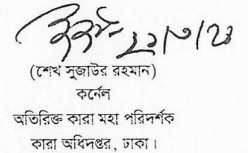 (শেখ সুজাউর রহমান)
কর্নেল
অতিরিক্ত কারা মহা পরিদর্শক
কারা অধিদপ্তর, ঢাকা।